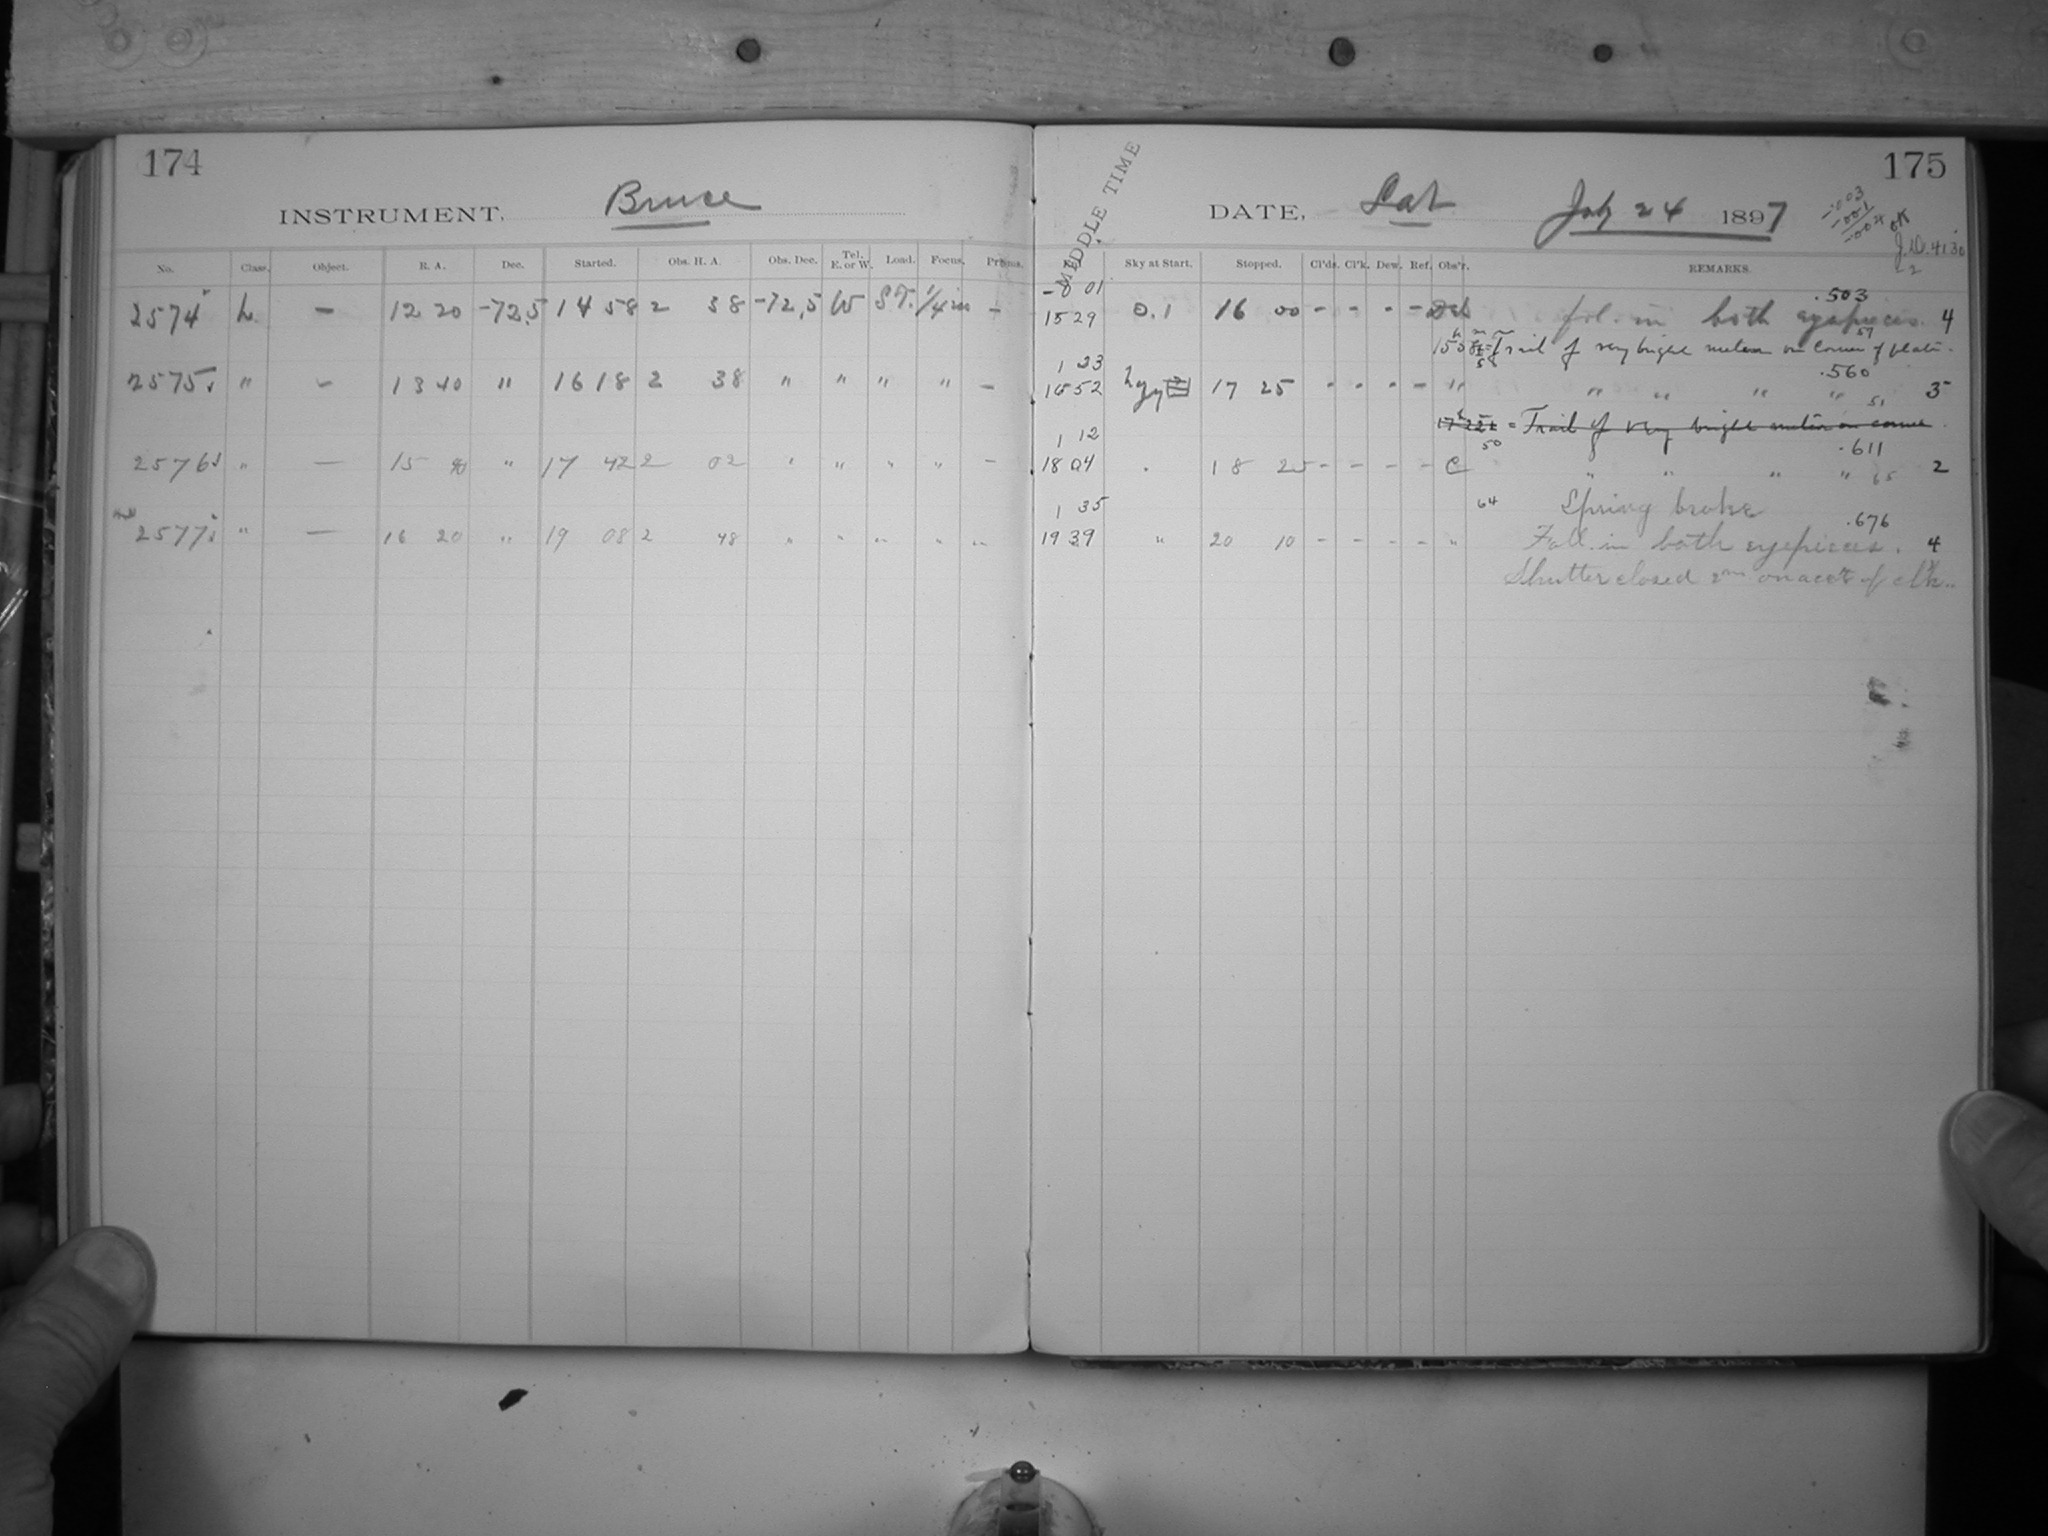 174
INSTRUMENT, Bruce
No. Class. Object. R. A. Dec. Started. Obs. H. A. Obs. Dec. Tel. E. or W. Load. Focus. Prisms.
2574 L — 12 20 -72.5 14 58 2 38 -72.5 W S.T. 1/4 in —
2575 " — 13 40 " 16 18 2 38 " " " " —
2576 " — 15 40 " 17 42 2 02 " " " " —
2577 " — 16 20 " 19 08 2 48 " " " " "
175
MIDDLE TIME
DATE, Sat July 24 1897
-.003
-.001
-.004 OK
J.D. 4130
-2
Sky at Start. Stopped. Cl'ds. Cl'k. Dew. Ref. Obs'r. REMARKS.
-0 01 .503
15 29 0.1 16 00 - - - - fol. in both eyepieces. 4
57
= Trail of very bright meteor on corner of plate.
58
1 23 .560
16 52 hzy 17 25 - - - - " " " " " 3
51
= Trail of very bright meteor on corner.
50
1 12 .611
18 04 . 18 25 - - - - C " " " " 2
65
64 Spring broke
1 35 .676
19 39 " 20 10 - - - - " Foll. in both eyepieces. 4
Shutter closed 2m on acct of clk.